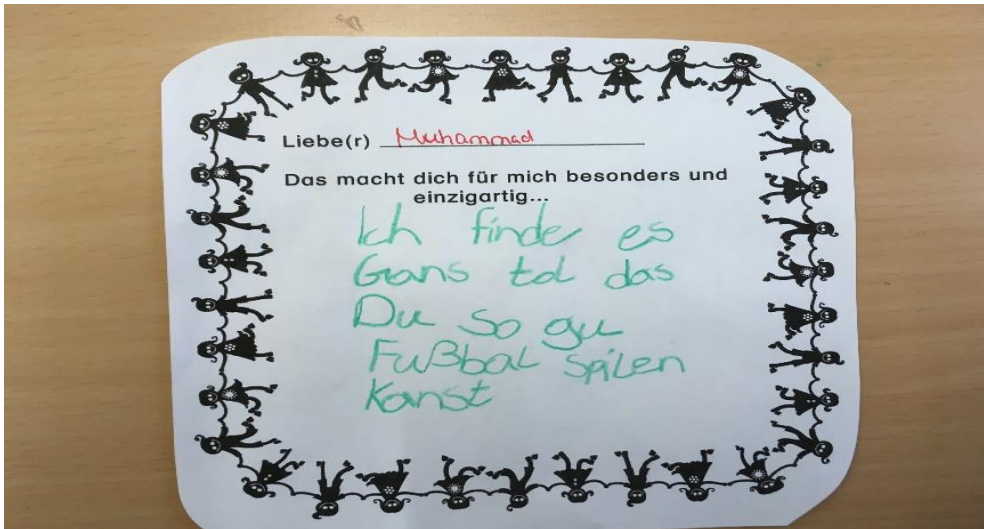 Liebe(r) Muhammad
Das macht dich für mich besonders und
einzigartig...
Ich finde es
Gans tol das
Du so gu
Fußbal spilen
Kanst